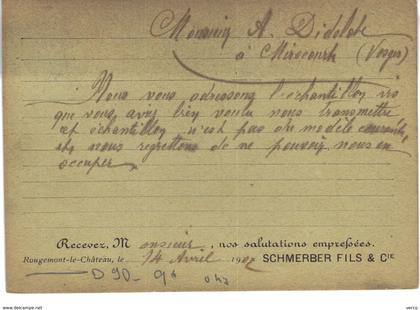 Monsieur A. Didelot
à Mirecourt (Vosges)
Nous vous adressons l'échantillon
que vous avez bien voulu nous transmettre
cet échantillon n'est pas du modèle courant,
et nous regrettons de ne pouvoir nous en
occuper
Recevez, Monsieur, nos salutations empressées.
Rougemont-le-Château, le 14 Avril 190 SCHMERBER FILS & CIE
D 90-9a